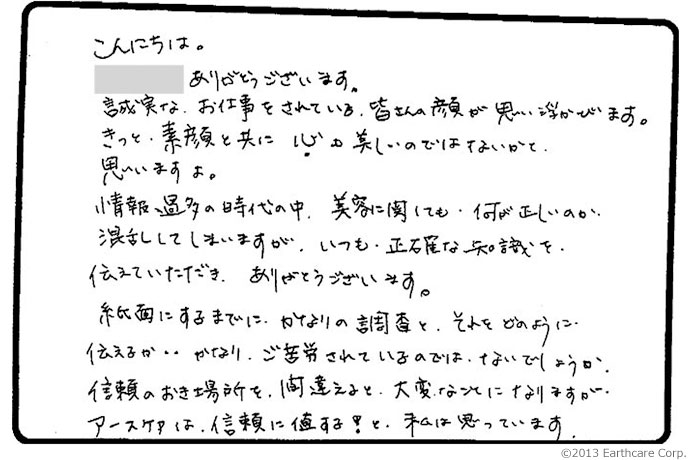 こんにちは。
ありがとうございます。
誠実な、お仕事をされている、皆さんの顔が思い浮かびます。
きっと、素顔と共に心も美しいのではないかと、
思いますよ。
情報過多の時代の中、美容に関しても、何が正しいのか、
混乱してしまいますが、いつも、正確な知識を、
伝えていただき、ありがとうございます。
紙面にするまでに、かなりの調査と、それをどのように、
伝えるか・・かなり、ご苦労されているのでは、ないでしょうか。
信頼のおき場所を、間違えると、大変なことになりますが、
アースケアは、信頼に値する!と、私は思っています。
©2013 Earthcare Corp.